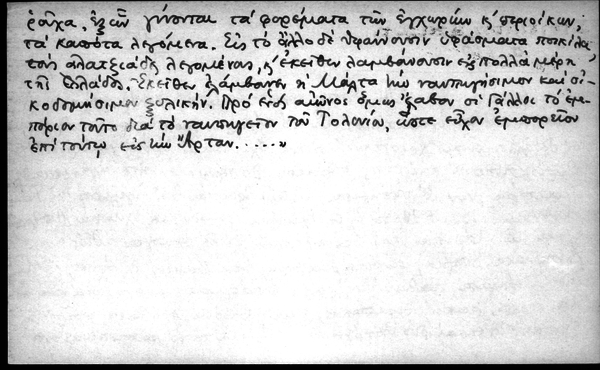 ροῦχα, ἐξ ὧν γίνονται τὰ φορέματα τῶν ἐγχωρίων κ̀ περιοίκων,
τὰ καπότα λεγόμενα. Εἰς τὸ ἄλλο δὲ ὑφαίνουσιν ὑφάσματα ποικίλα
τοὺς ἀλατζιάδες λεγομένους, κ̀ ἐκεῖθεν λαμβάνουσιν εἰς πολλὰ μέρη
τῆς Ἑλλάδος. Ἐκεῖθεν ἐλάμβανεν ἡ Μάλτα τὴν ναυπηγήσιμον καὶ οἰ-
κοδομήσιμον ξυλικήν. Πρὸ ἑνὸς αἰῶνος ὅμως ἔλαβον οἱ Γάλλοι τὸ ἐμ-
πόριον τοῦτο διὰ τὸ ναυπηγεῖον τοῦ Τολονίου, ὥστε εἶχον ἐμπορεῖον
ἐπὶ τούτῳ εἰς τὴν Ἄρταν.....»